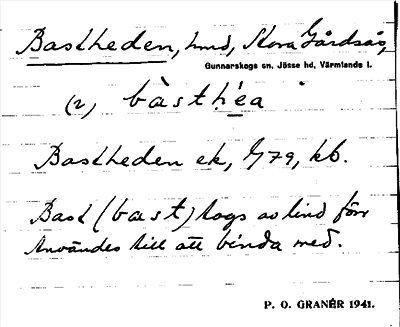 Bastheden, hmd, Stora Gårdsås,
Gunnarskogs sn, Jösse hd, Värmlands l.
(2) bàsthéa
Bastheden ek, G79, kb.
Bast (bast) togs av lind förr
Användes till att binda med.
P. O. GRANÉR 1941.